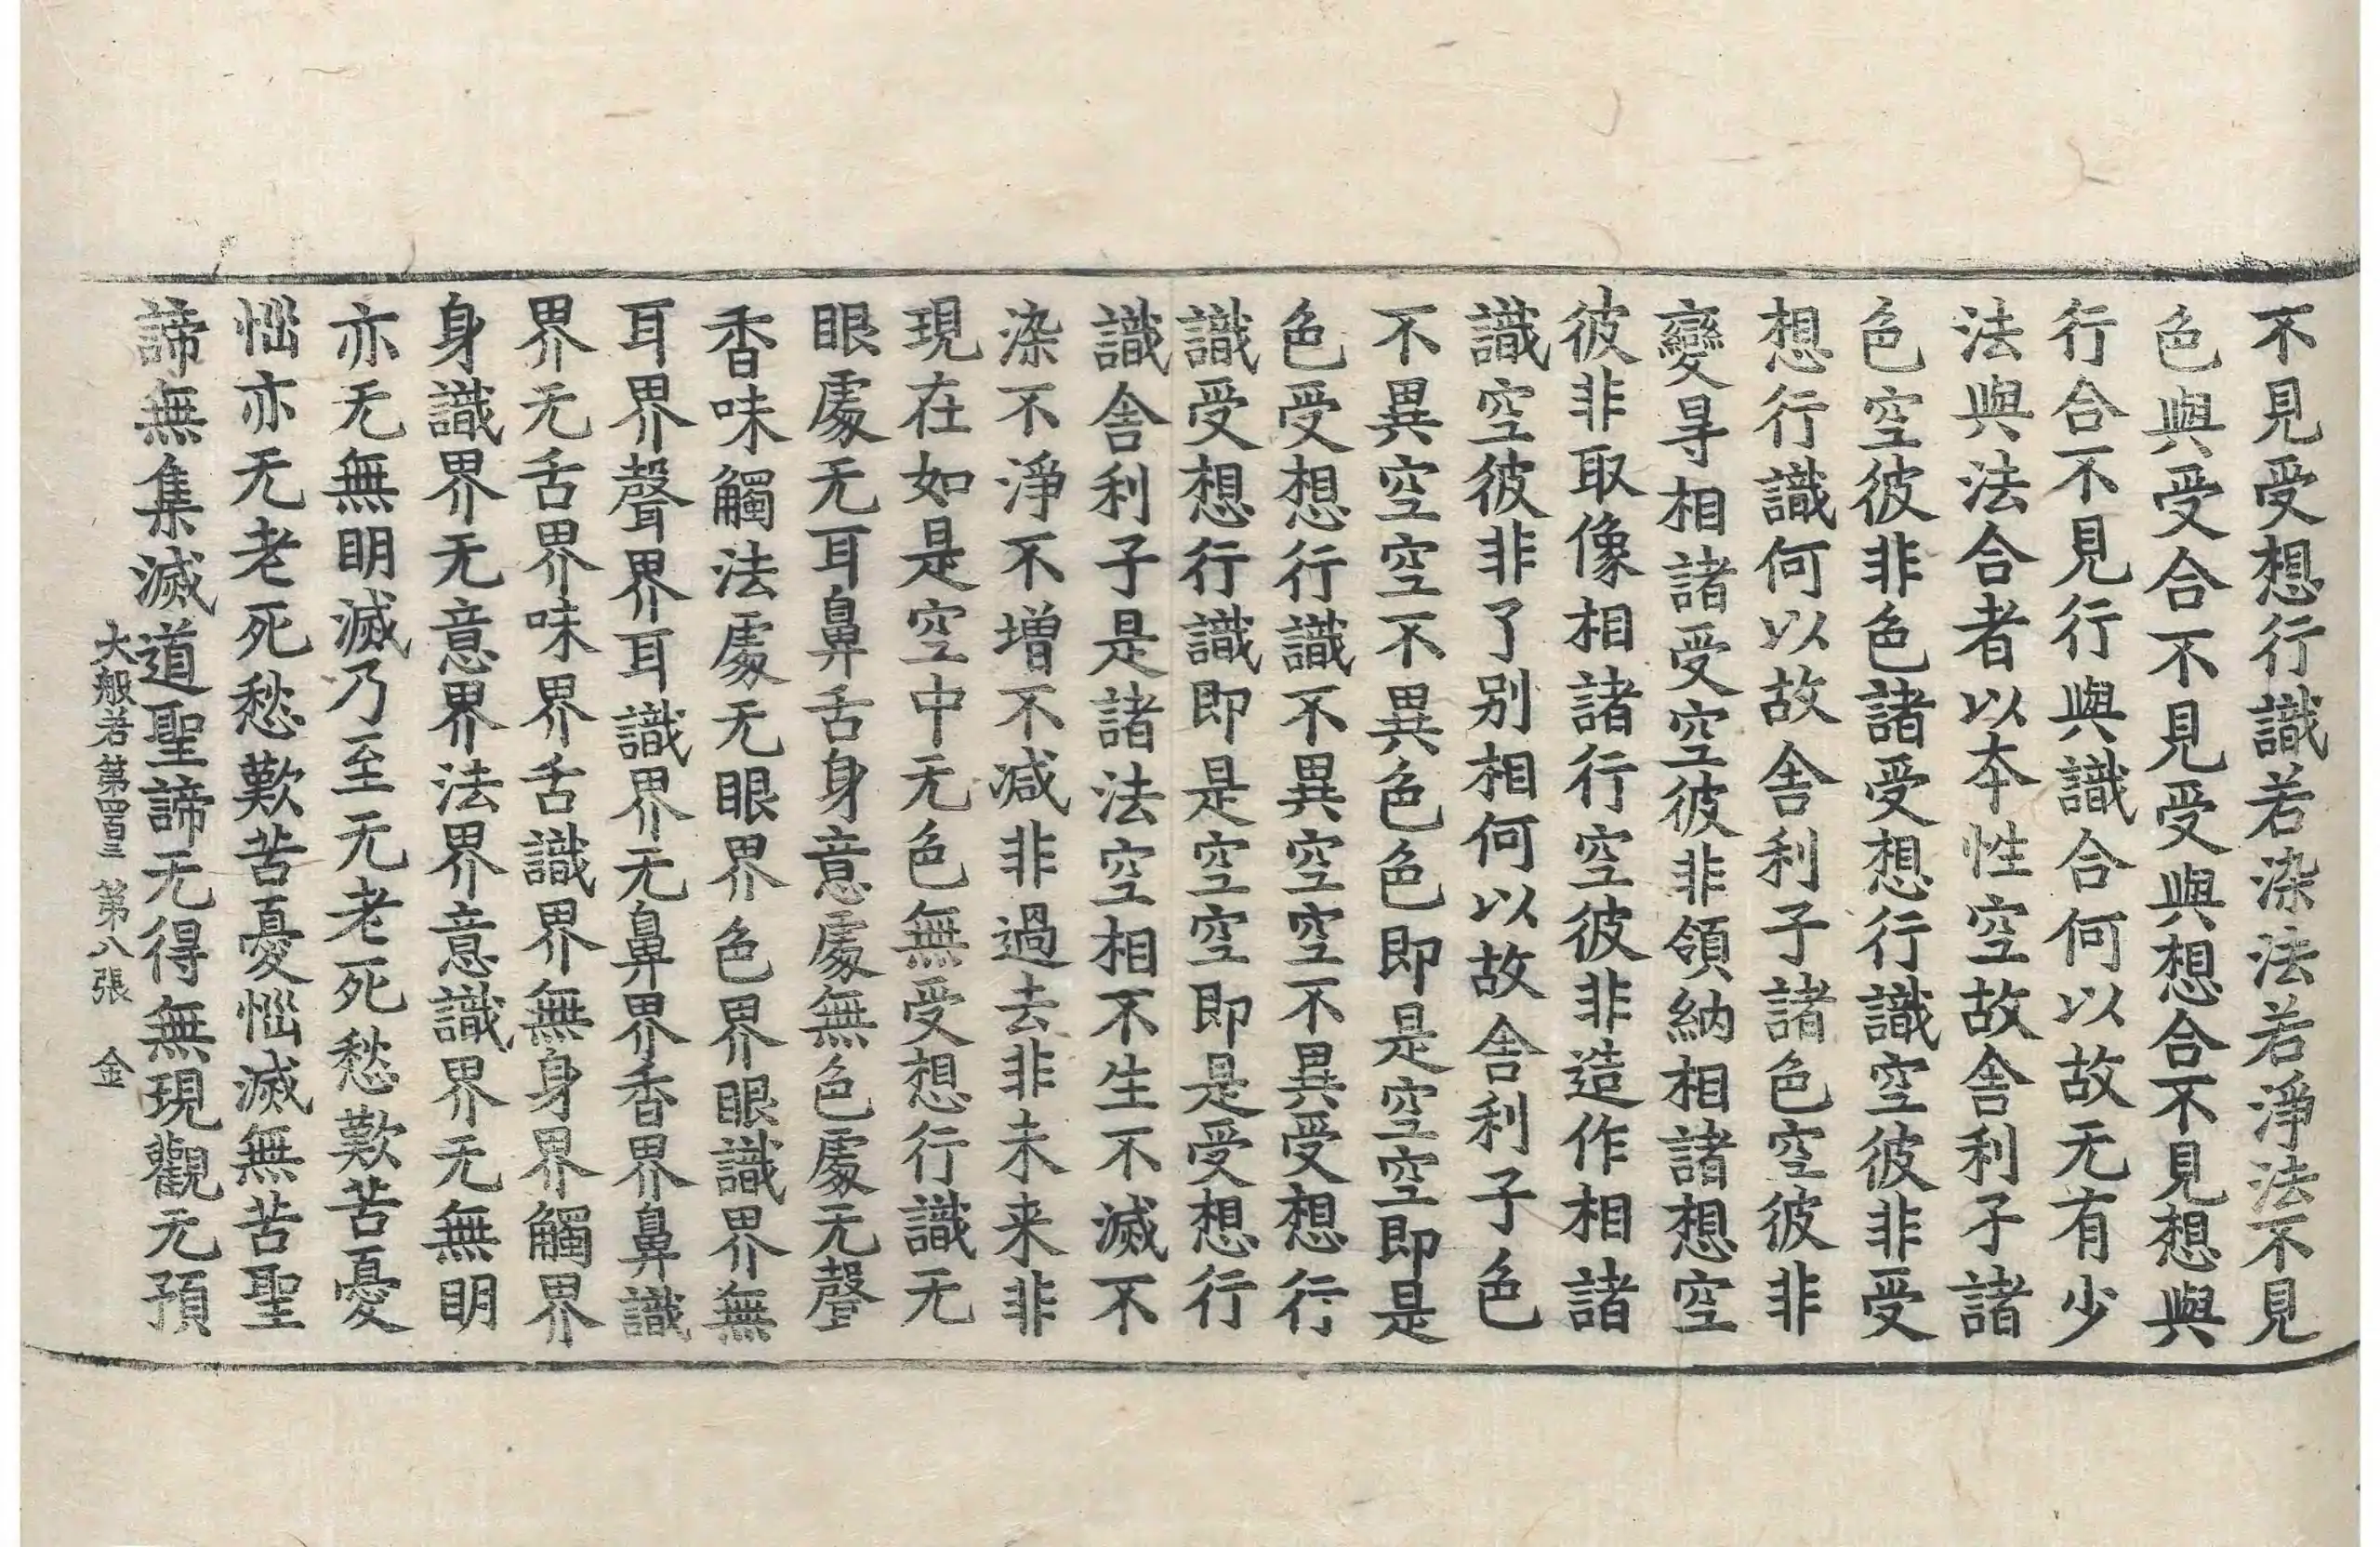 不見受想行識若染法若淨法不見
色與受合不見受與想合不見想與
行合不見行與識合何以故无有少
法與法合者以本性空故舍利子諸
色空彼非色諸受想行識空彼非受
想行識何以故舍利子諸色空彼非
變㝵相諸受空彼非領納相諸想空
彼非取像相諸行空彼非造作相諸
識空彼非了别相何以故舍利子色
不異空空不異色色即是空空即是
色受想行識不異空空不異受想行
識受想行識即是空空即是受想行
識舍利子是諸法空相不生不滅不
染不淨不增不減非過去非未来非
現在如是空中无色無受想行識无
眼處无耳鼻舌身意處無色處无聲
香味觸法處无眼界色界眼識界無
耳界聲界耳識界无鼻界香界鼻識
界无舌界味界舌識界無身界觸界
身識界无意界法界意識界无無明
亦无無明滅乃至无老死愁歎苦憂
惱亦无老死愁歎苦憂惱滅無苦聖
諦無集滅道聖諦无得無現觀无預
大般若第四百三 第八張 金